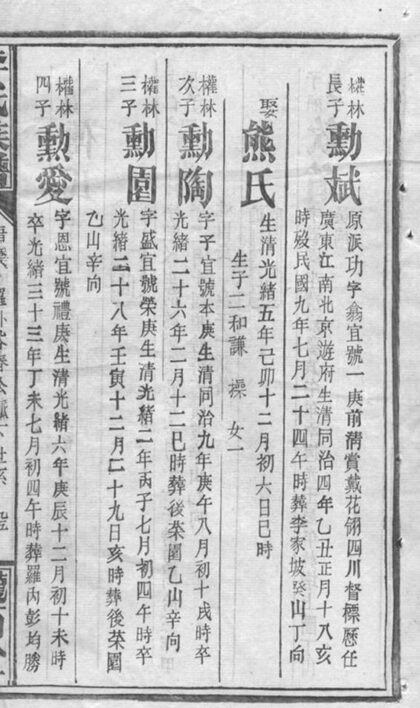 權林
長子
勳斌
原派功字翁宜號一庚前清賞戴花翎四川督標歷任
廣東江南北京遊府生清同治四年乙丑正月十八亥
時歿民國九年七月二十四午時葬李家坡癸山丁向
娶
熊氏
生清光緒五年己卯十二月初六日巳時
生子二和謙 操 女一
權林
次子
勳陶
字子宜號本庚生清同治九年庚午八月初十戌時卒
光緒二十六年二月十二巳時葬後菜園乙山辛向
權林
三子
勳園
字盛宜號榮庚生清光緒二年丙子七月初四午時卒
光緒二十八年壬寅十二月二十九日亥時葬後菜園
乙山辛向
權林
四子
勳愛
字恩宜號禮庚生清光緒六年庚辰十二月初十未時
卒光緒三十三年丁未七月初四午時葬羅丙彭均勝